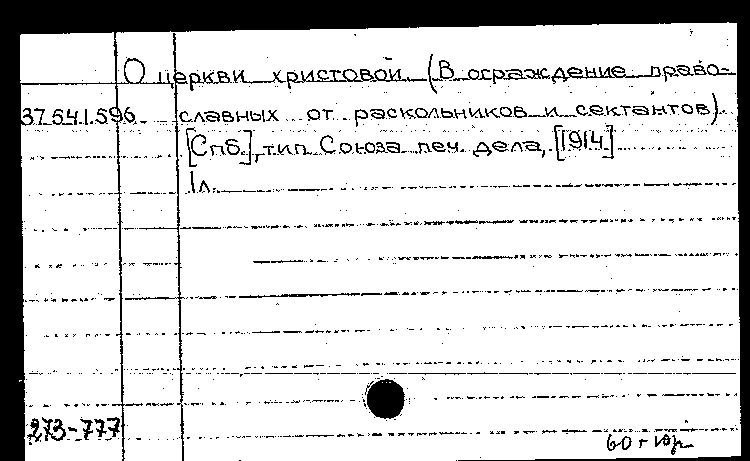 О церкви христовой. (В ограждение право-
37.54.1.596. славных от раскольников и сектантов).
[Спб.], тип. Союза печ. дела, [1914]
1 л.
273-777
60 г